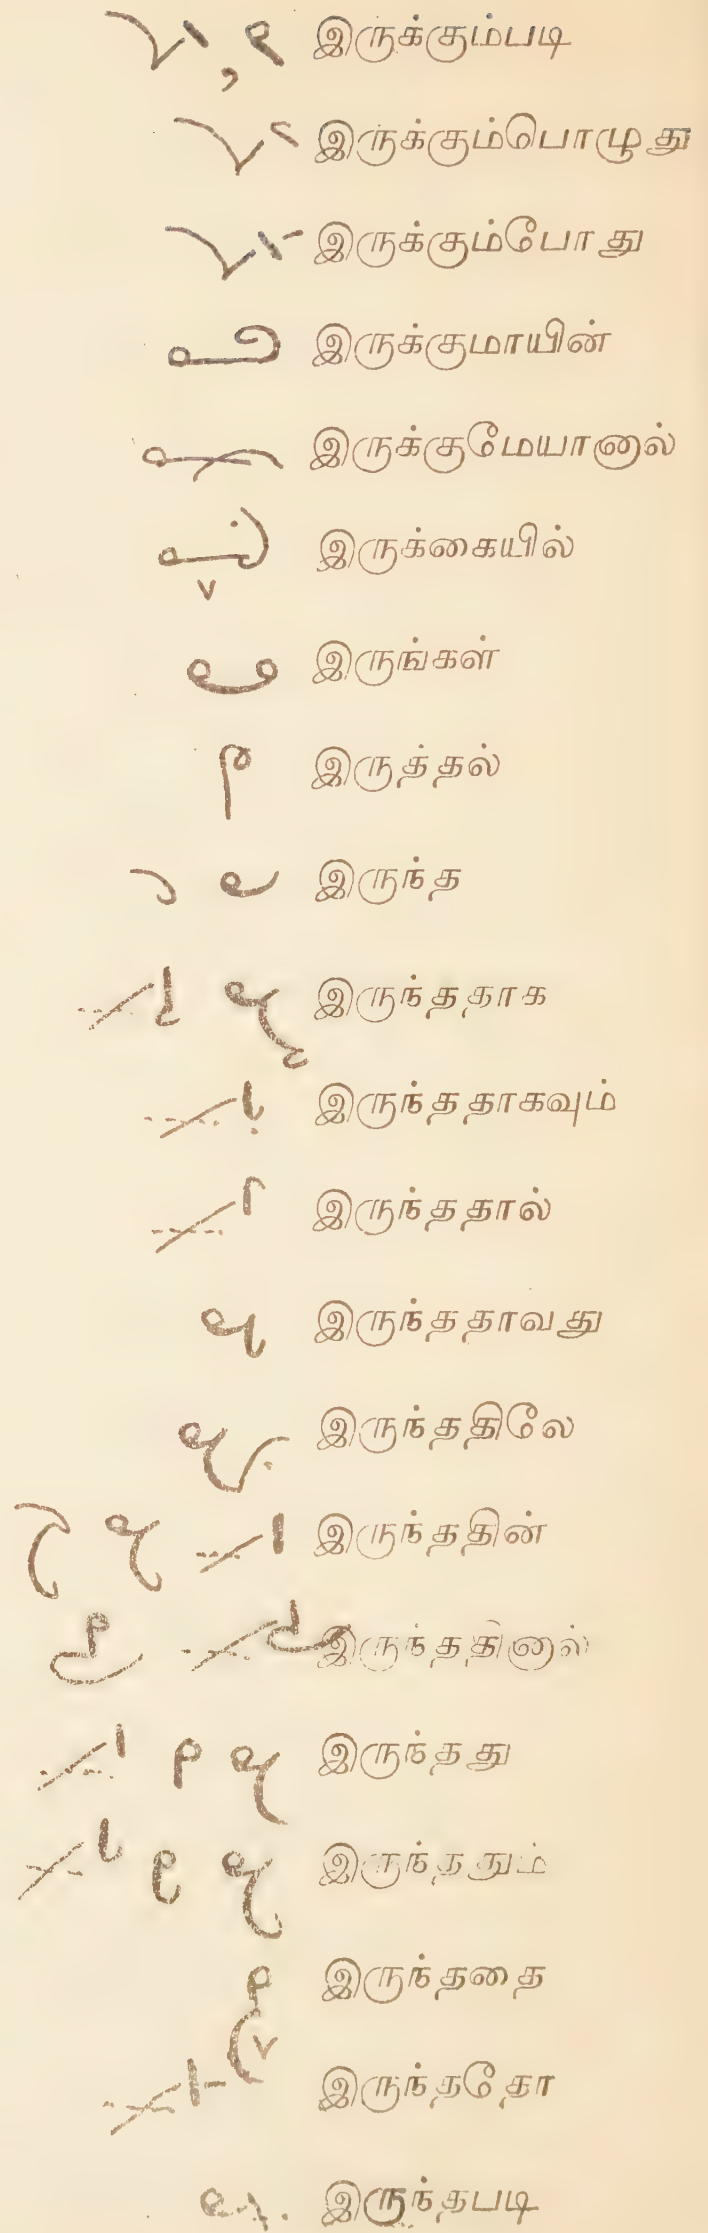 இருக்கும்படி
இருக்கும்பொழுது
இருக்கும்போது
இருக்குமாயின்
இருக்குமேயானால்
இருக்கையில்
இருங்கள்
இருத்தல்
இருந்த
இருந்ததாக
இருந்ததாகவும்
இருந்ததால்
இருந்ததாவது
இருந்ததிலே
இருந்ததின்
இருந்ததினால்
இருந்தது
இருந்ததும்
இருந்ததை
இருந்ததோ
இருந்தபடி